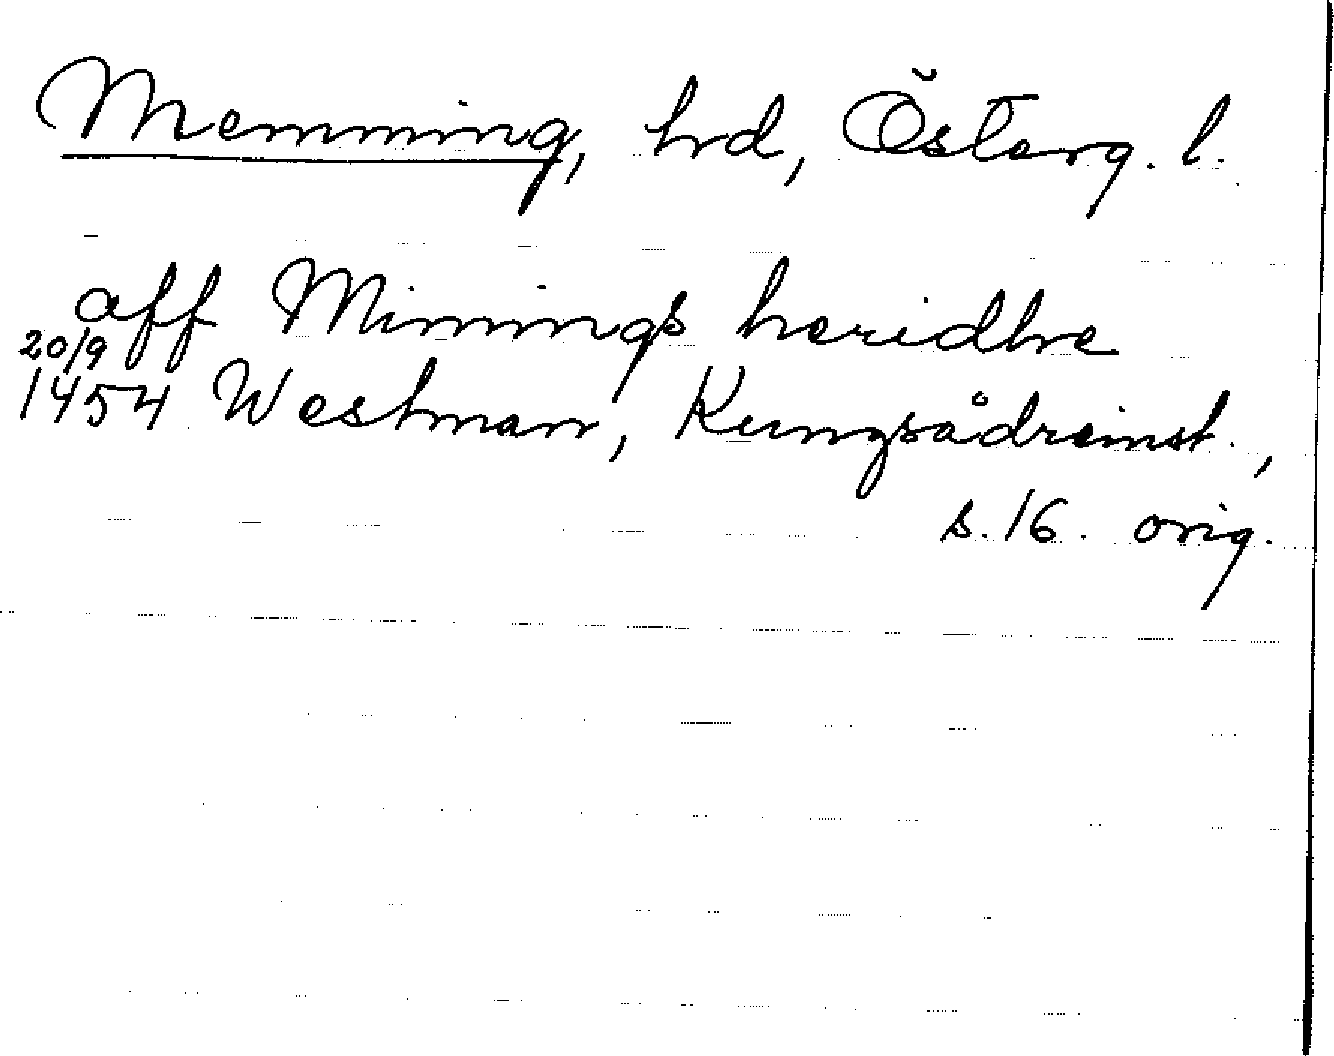 Memming, hrd, Österg. l.
aff Minnings heridhe
20/9
1454 Westman, Kungsådreinst.,
s. 16. orig.